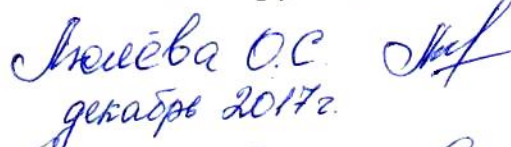 Люлёва О.С.
декабрь 2017г.